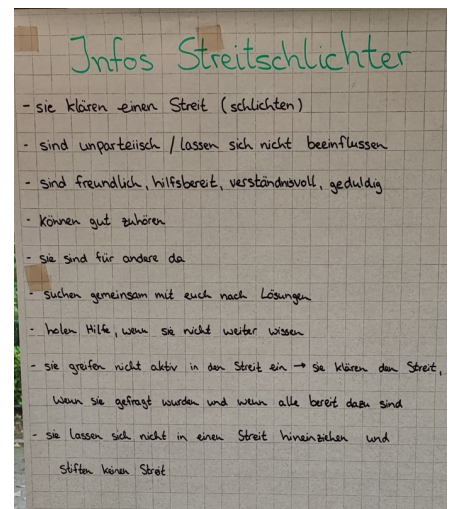 Infos Streitschlichter
- sie klären einen Streit (schlichten)
- sind unparteiisch / lassen sich nicht beeinflussen
- sind freundlich, hilfsbereit, verständnisvoll, geduldig
- können gut zuhören
- sie sind für andere da
- suchen gemeinsam mit euch nach Lösungen
- holen Hilfe, wenn sie nicht weiter wissen
- sie greifen nicht aktiv in den Streit ein → sie klären den Streit,
wenn sie gefragt wurden und wenn alle bereit dazu sind
- sie lassen sich nicht in einen Streit hineinziehen und
stiften keinen Streit